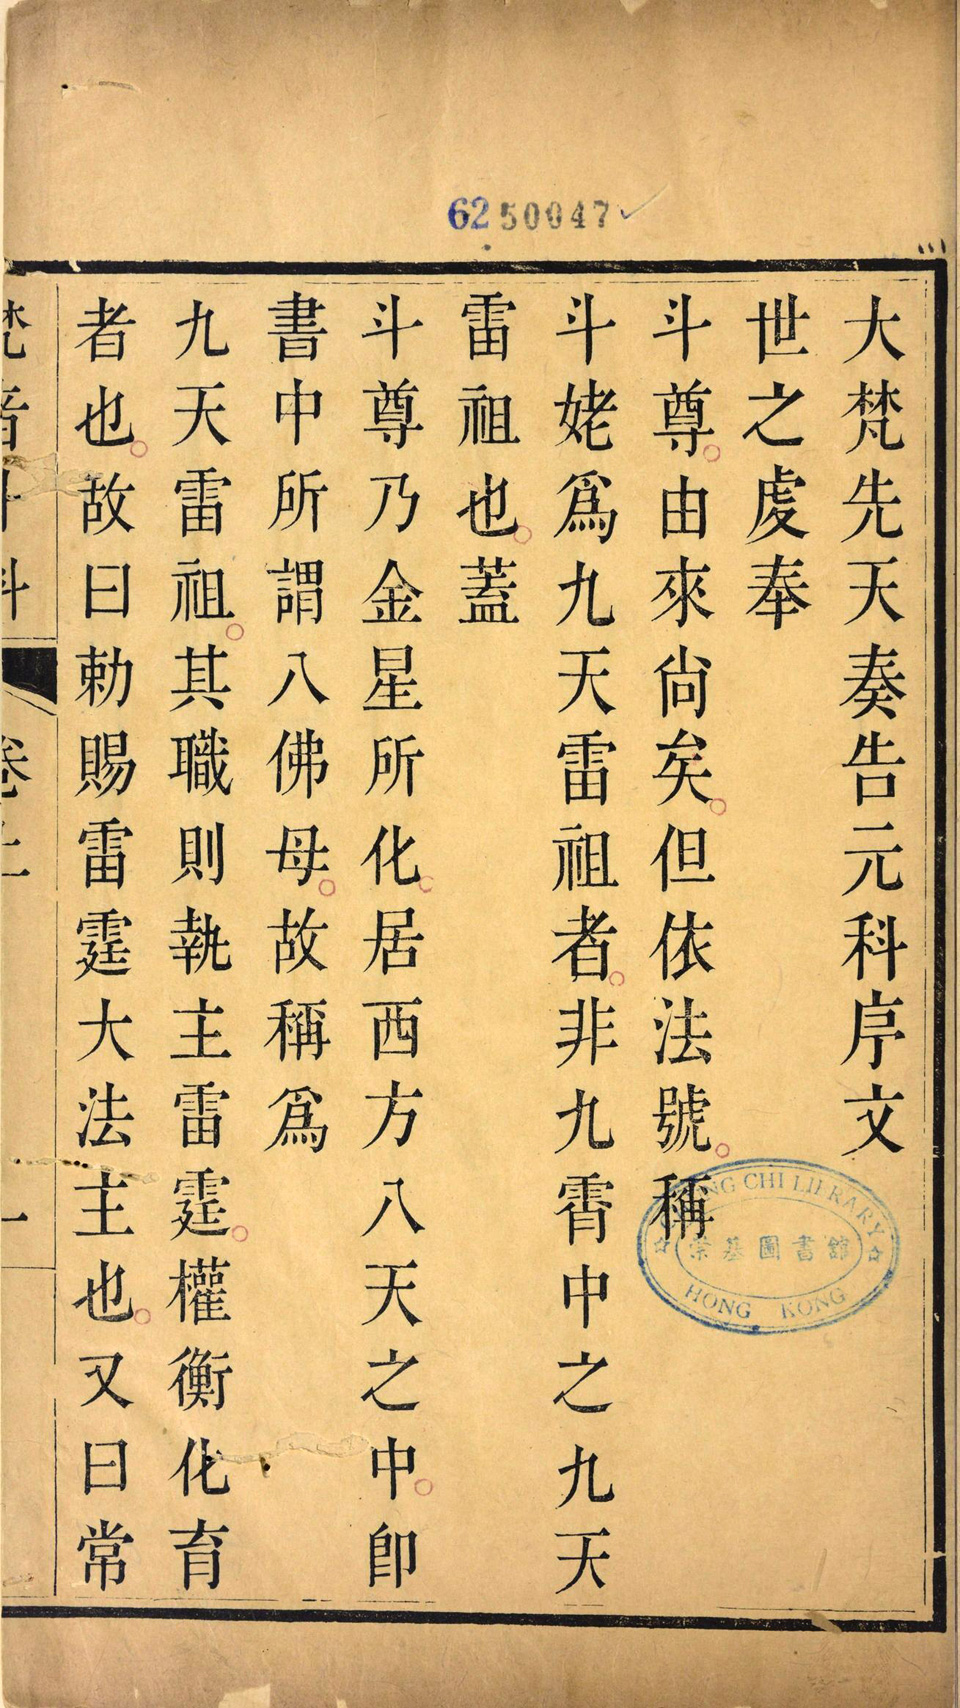 6250047
大梵先天奏告元科序文
世之虔奉
斗尊由來尙矣但依法號稱
斗姥爲九天雷祖者非九霄中之九天
雷祖也蓋
斗尊乃金星所化居西方八天之中卽
書中所謂八佛母故稱爲
九天雷祖其職則執主雷霆權衡化育
者也故曰勅賜雷霆大法主也又曰常
梵音斗科
卷上
一
CHI LIBRARY
崇基圖書館
HONG KONG